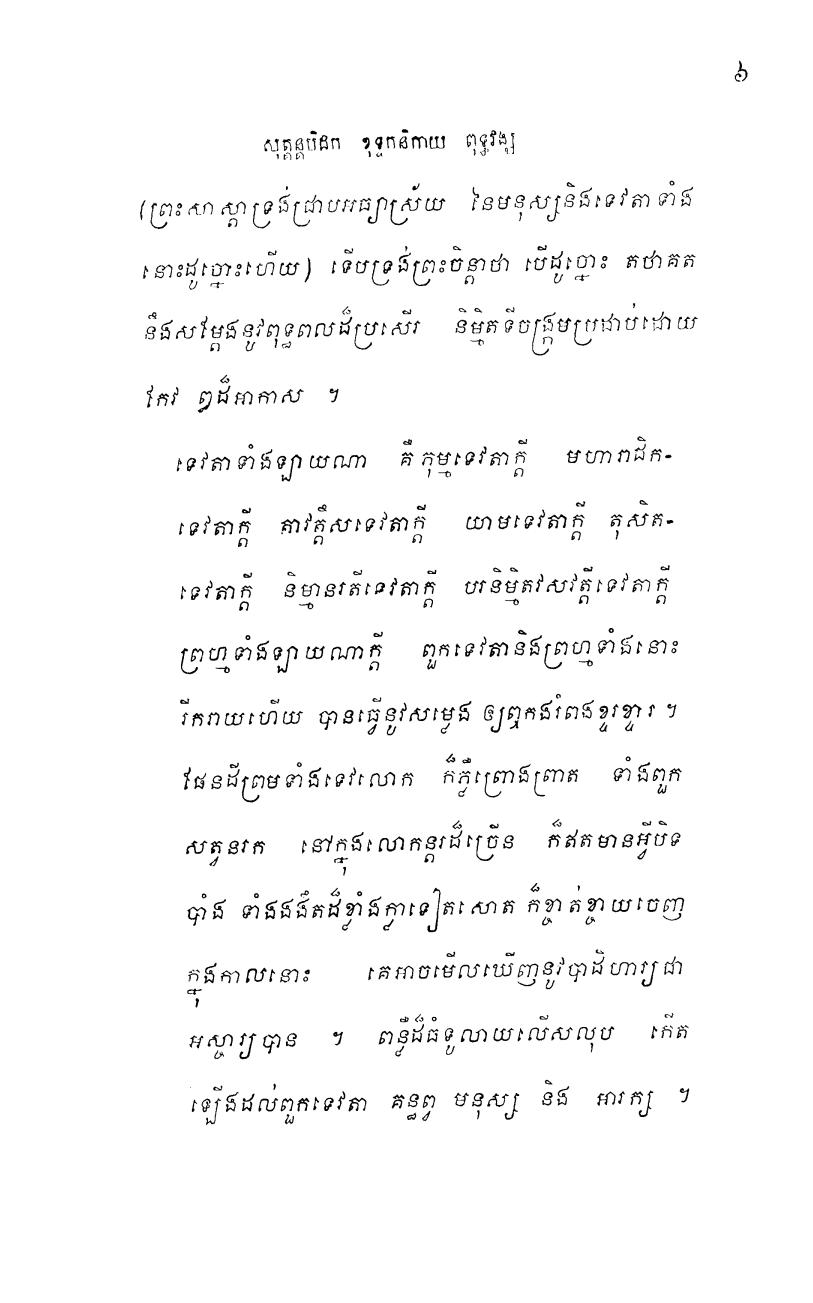 ៦
សុត្តន្តបិដក ខុទ្ទកនិកាយ ពុទ្ធវង្ស
(ព្រះសាស្តាទ្រង់ជ្រាបអធ្យាស្រ័យ នៃមនុស្សនិងទេវតាទាំង
នោះដូច្នោះហើយ) ទើបទ្រង់ព្រះចិន្តាថា បើដូច្នោះ តថាគត
នឹងសម្តែងនូវពុទ្ធពលដ៏ប្រសើរ និម្មិតទីចង្ក្រមប្រដាប់ដោយ
កែវ ឰដ៏អាកាស ។
ទេវតាទាំងឡាយណា គឺ ភុម្មទេវតាក្តី មហារាជិក-
ទេវតាក្តី តាវត្តឹសទេវតាក្តី យាមទេវតាក្តី តុសិត-
ទេវតាក្តី និម្មានរតីទេវតាក្តី បរនិម្មិតវសវត្តីទេវតាក្តី
ព្រហ្មទាំងឡាយណាក្តី ពួកទេវតានិងព្រហ្មទាំងនោះ
រីករាយហើយ បានធ្វើនូវសម្លេង ឲ្យឮកងរំពងខ្ទរខ្ទារ ។
ផែនដីព្រមទាំងទេវលោក ក៏ភ្លឺព្រោងព្រាត ទាំងពួក
សត្វនរក នៅក្នុងលោកន្តរដ៏ច្រើន ក៏ឥតមានអ្វីបិទ
បាំង ទាំងងងឹតដ៏ខ្លាំងក្លាទៀតសោត ក៏ខ្ចាត់ខ្ចាយចេញ
ក្នុងកាលនោះ គេអាចមើលឃើញនូវបាដិហារ្យជា
អស្ចារ្យបាន ។ ពន្លឺដ៏ធំទូលាយលើសលុប កើត
ឡើងដល់ពួកទេវតា គន្ធព្វ មនុស្ស និង អារក្ស ។